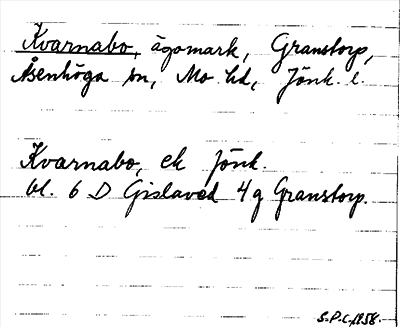 Kvarnabo, ägomark, Granstorp,
Åsenhöga sn, Mo hd, Jönk. l.
Kvarnabo, ek Jönk.
bl. 6 D Gislaved 4 g Granstorp.
S.P.C. 1958.